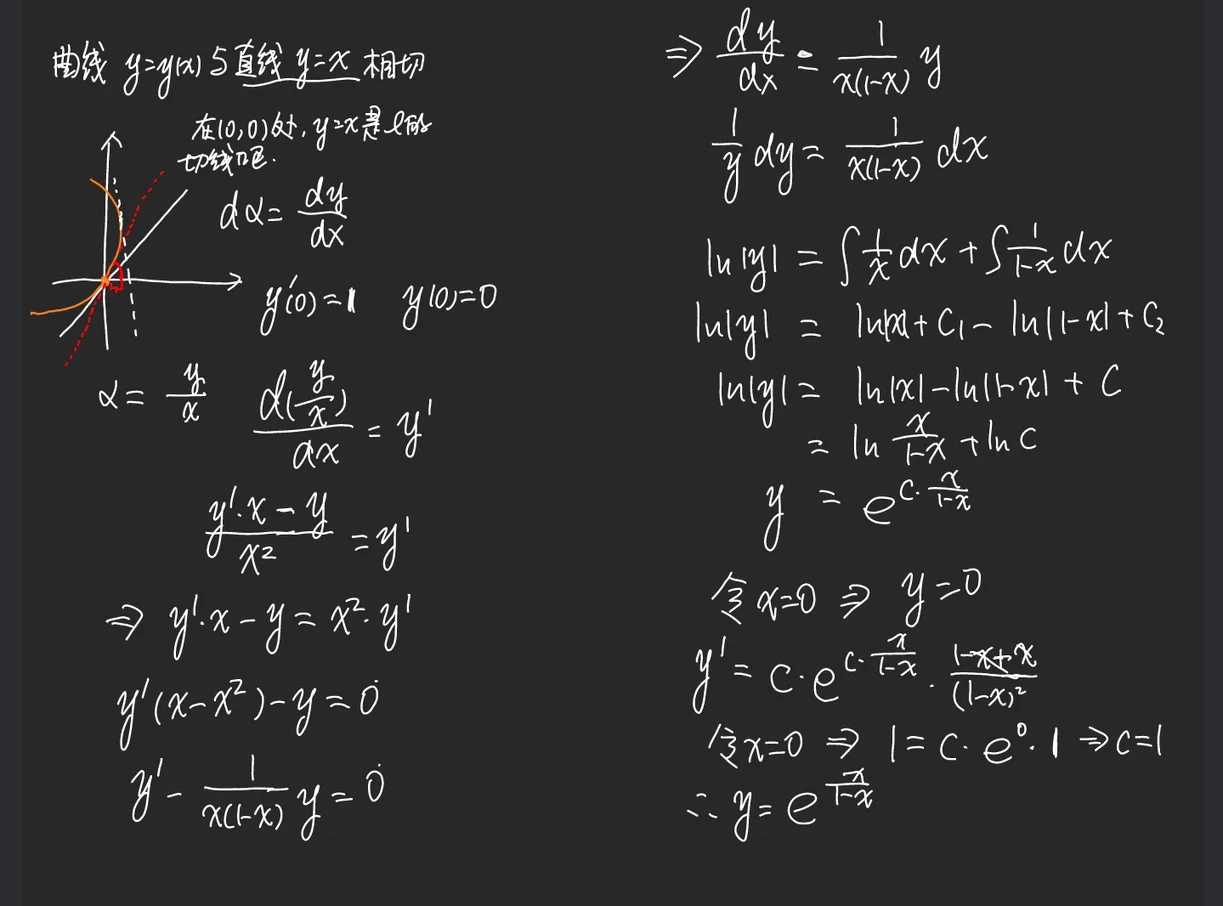 曲线 y=y(x) 与直线 y=x 相切
在(0,0)处, y=x是l的
切线吧.
dα = dy/dx
y'(0)=1 y(0)=0
α = y/x d(y/x)/dx = y'
(y'·x - y)/x² = y'
⇒ y'·x - y = x²·y'
y'(x-x²) - y = 0
y' - 1/(x(1-x)) y = 0
⇒ dy/dx = 1/(x(1-x)) y
1/y dy = 1/(x(1-x)) dx
ln|y| = ∫1/x dx + ∫1/(1-x) dx
ln|y| = ln|x| + C₁ - ln|1-x| + C₂
ln|y| = ln|x| - ln|1-x| + C
= ln x/(1-x) + ln C
y = e^(C·x/(1-x))
令 x=0 ⇒ y=0
y' = C·e^(C·x/(1-x)) · (1-x+x)/(1-x)²
令 x=0 ⇒ 1 = C·e⁰·1 ⇒ C=1
∴ y = e^(x/(1-x))